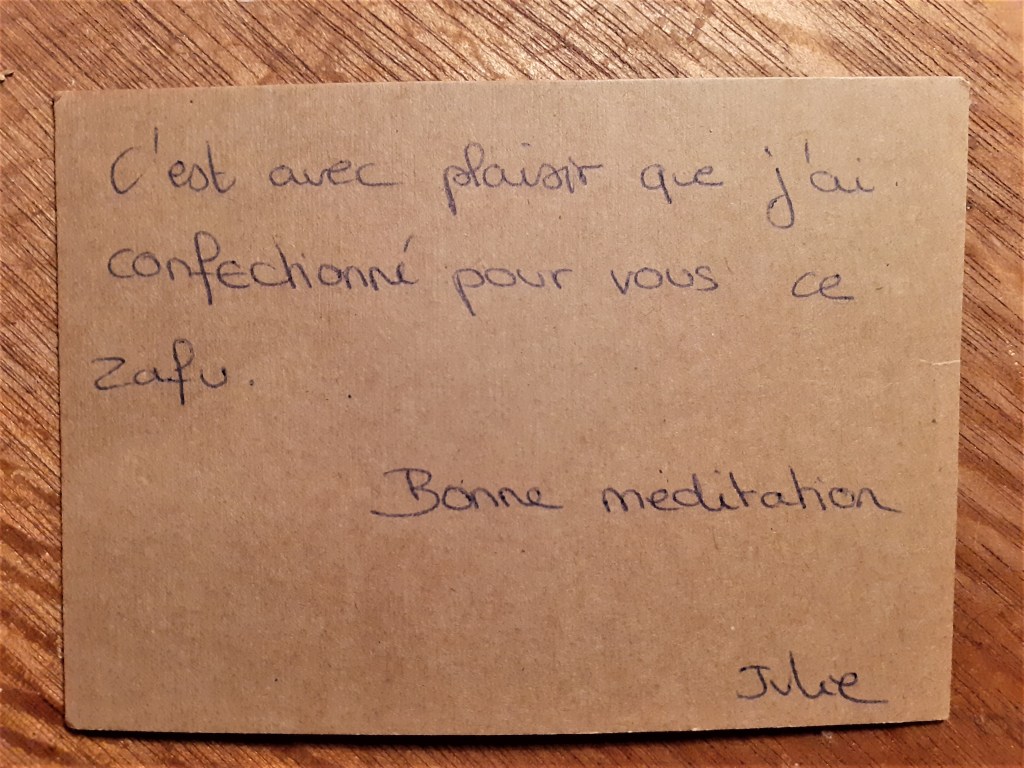 C'est avec plaisir que j'ai
confectionné pour vous ce
zafu.
Bonne méditation
Julie